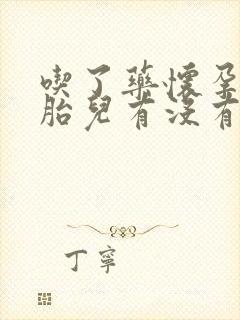 喫了藥懷孕
胎兒有沒有
丁寧